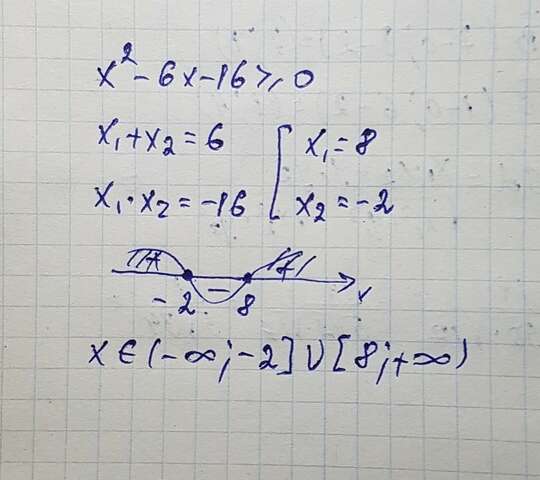 x² - 6x - 16 ≥ 0
x₁ + x₂ = 6 [ x₁ = 8
x₁ · x₂ = -16 [ x₂ = -2
+ - +
-2 8 x
x ∈ (-∞; -2] ∪ [8; +∞)